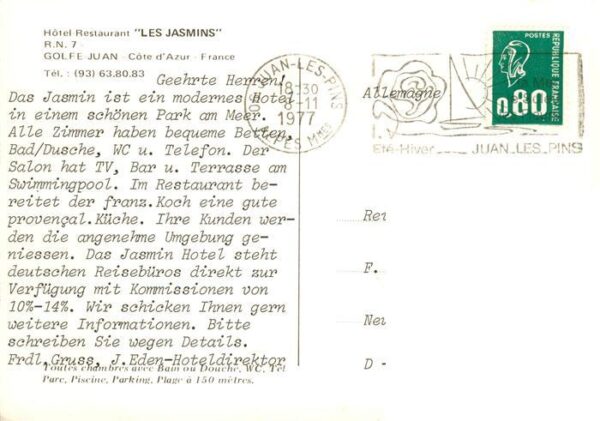 Hôtel Restaurant "LES JASMINS"
R.N. 7 -
GOLFE JUAN - Côte d'Azur - France
Tél. : (93) 63.80.83
Geehrte Herren!
Das Jasmin ist ein modernes Hotel
in einem schönen Park am Meer.
Alle Zimmer haben bequeme Betten,
Bad/Dusche, WC u. Telefon. Der
Salon hat TV, Bar u. Terrasse am
Swimmingpool. Im Restaurant be-
reitet der franz.Koch eine gute
provençal.Küche. Ihre Kunden wer-
den die angenehme Umgebung ge-
niessen. Das Jasmin Hotel steht
deutschen Reisebüros direkt zur
Verfügung mit Kommissionen von
10%-14%. Wir schicken Ihnen gern
weitere Informationen. Bitte
schreiben Sie wegen Details.
Frdl.Gruss, J.Eden-Hoteldirektor
Toutes chambres avec Bain ou Douche, WC, Tél
Parc, Piscine, Parking, Plage à 150 mètres.
JUAN-LES-PINS
18-30
-11
1977
ALPES Mmes
Allemagne
POSTES
REPUBLIQUE FRANÇAISE
0,80
Eté-Hiver JUAN_LES_PINS
Rei
F.
Nei
D -